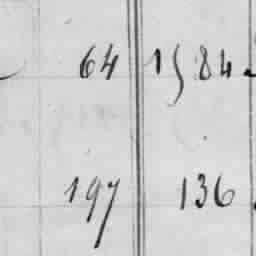 64 1584
197 136